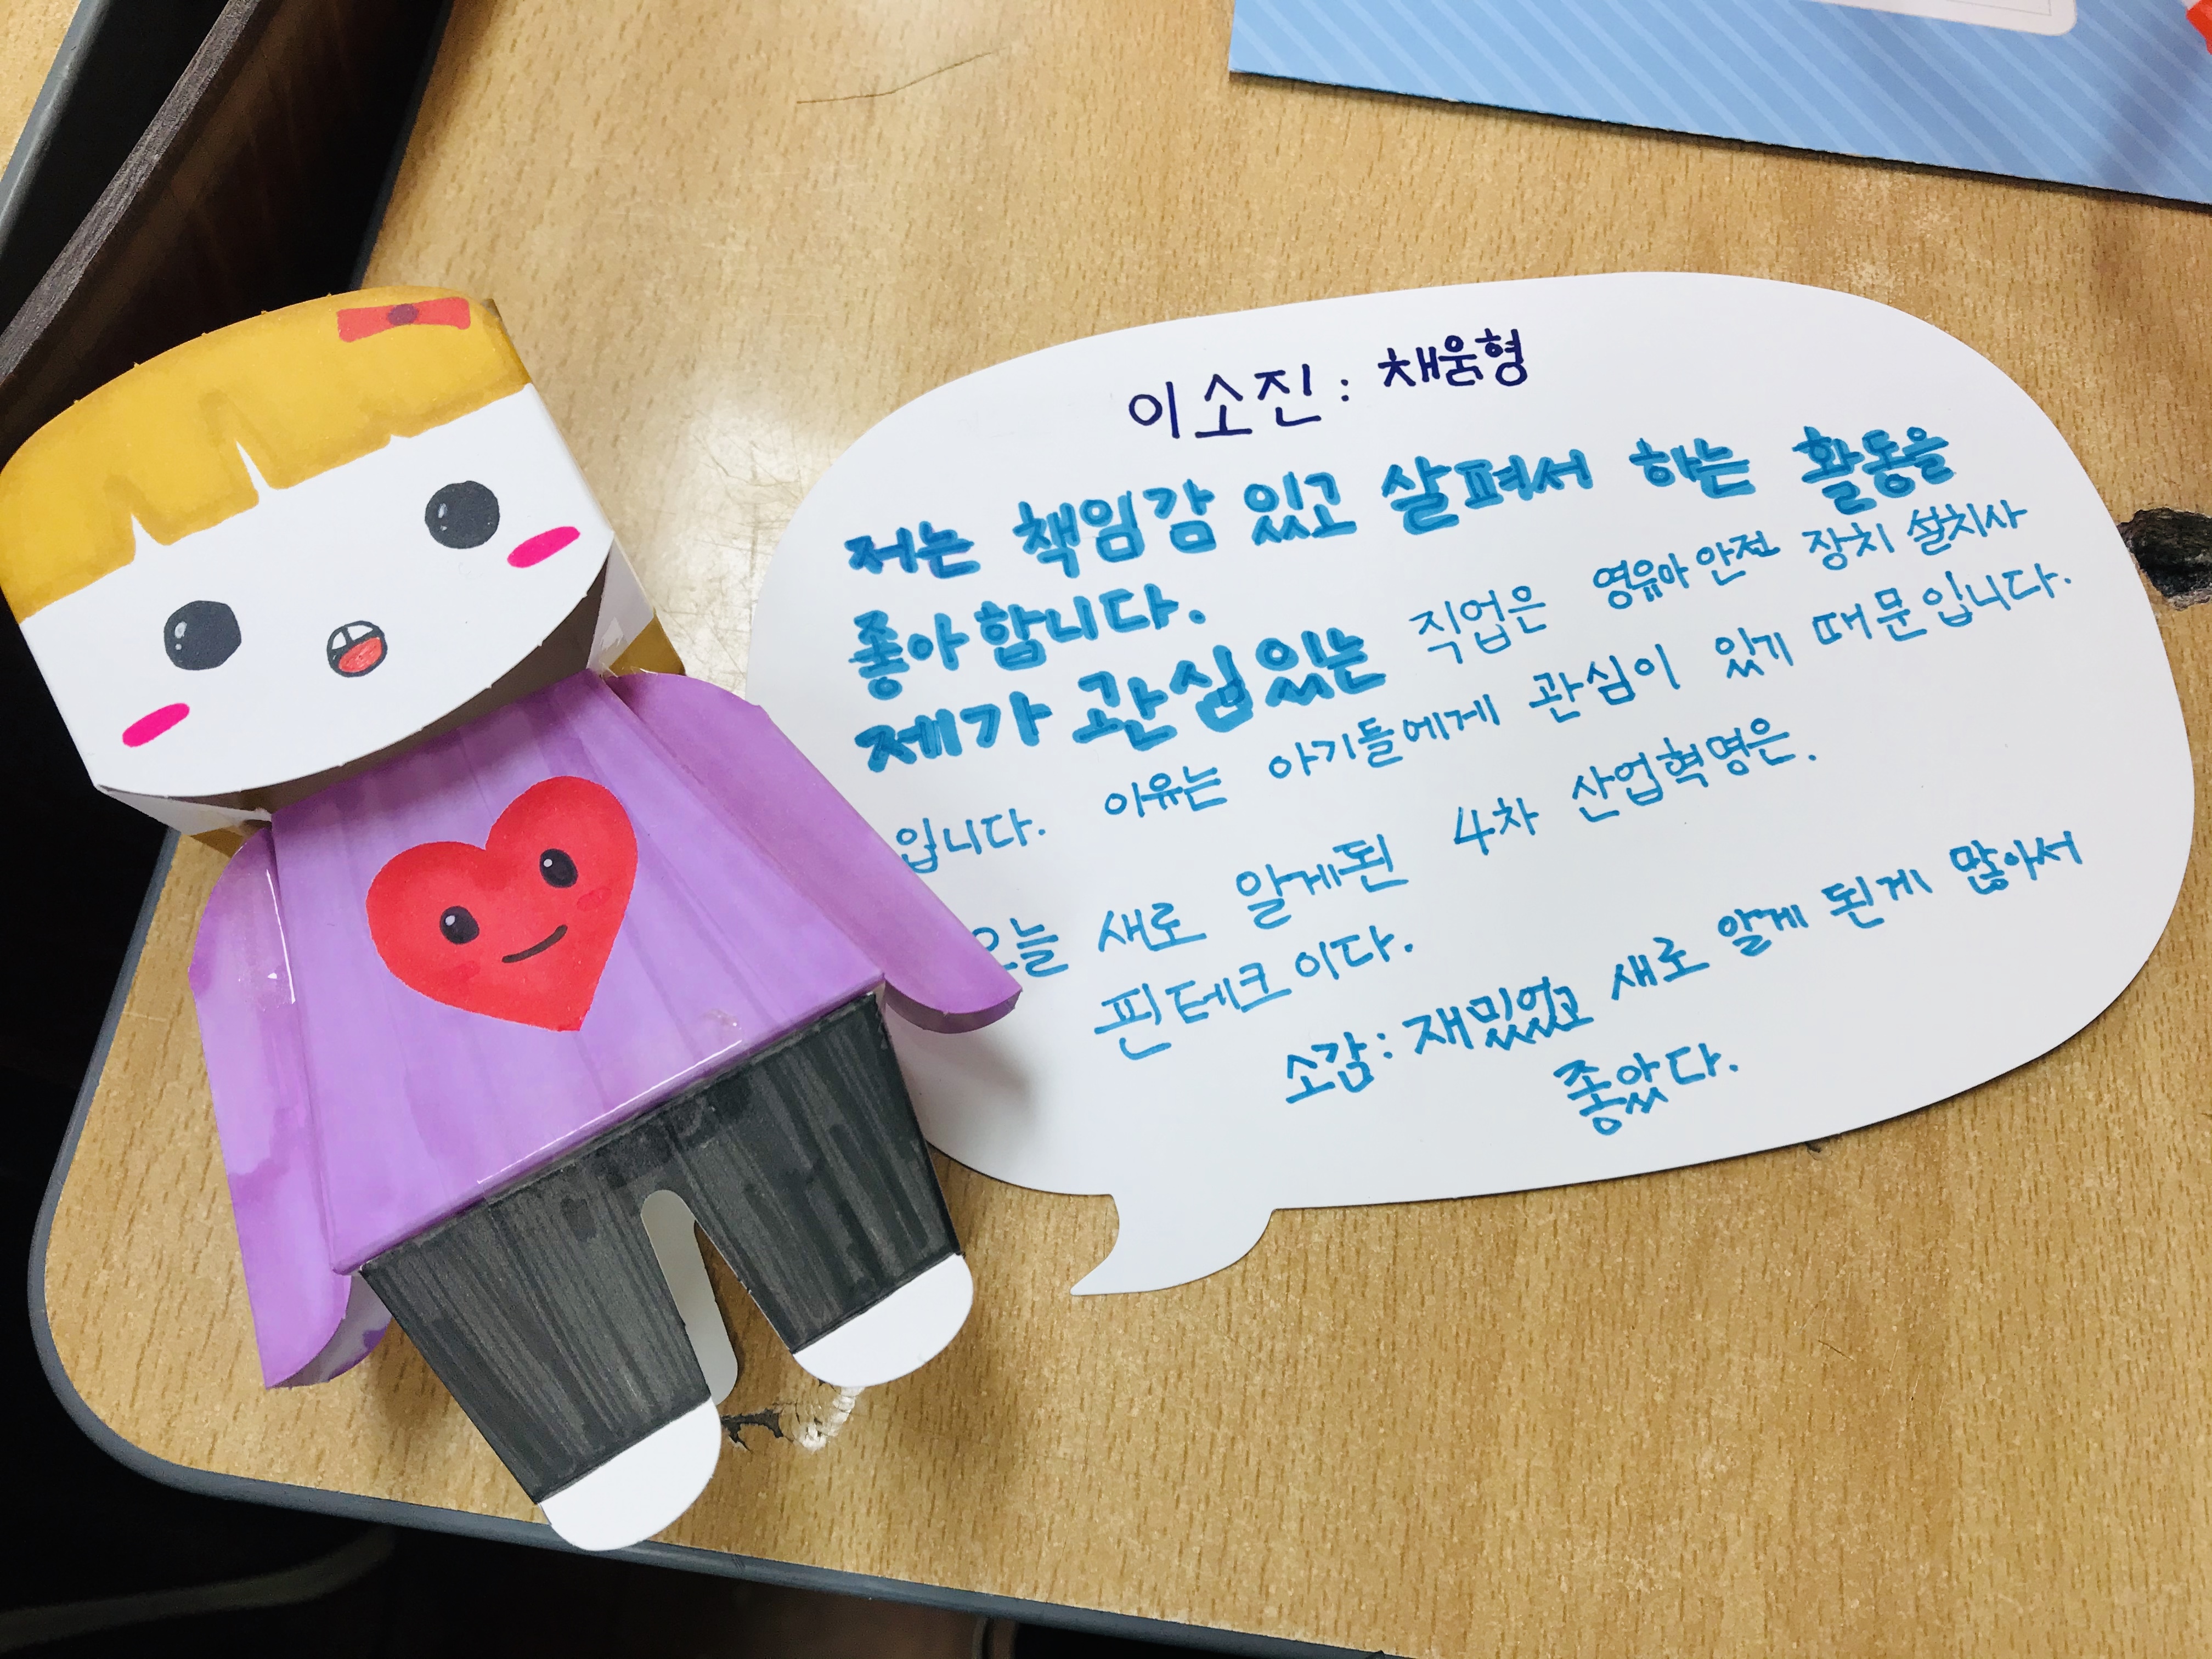 이소진 : 채움형
저는 책임감 있고 살펴서 하는 활동을
좋아합니다.
제가 관심있는 직업은 영유아 안전 장치 설치사
입니다. 이유는 아기들에게 관심이 있기 때문입니다.
오늘 새로 알게된 4차 산업혁명은.
핀테크이다.
소감 : 재밌었고 새로 알게 된게 많아서
좋았다.